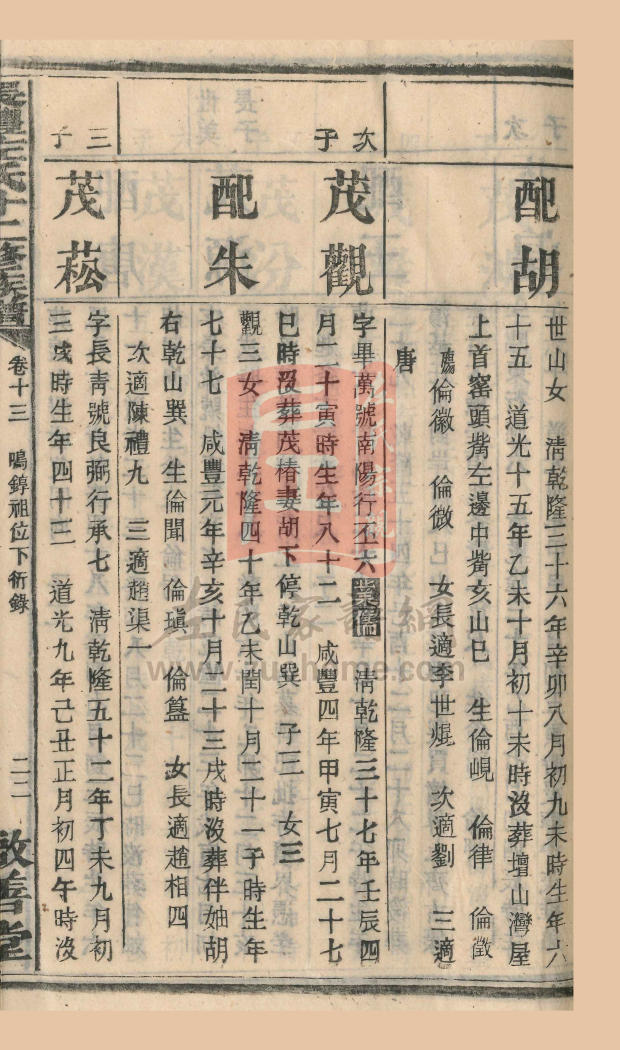 配胡
世山女　清乾隆三十六年辛卯八月初九未時生年六
十五　道光十五年乙未十月初十未時沒葬壇山灣屋
上首窰頭觜左邊中觜亥山巳　生倫峴　倫律　倫徵
倫徽　倫微　女長適李世焜　次適劉　三適
唐
次子
茂觀
字畢萬號南陽行丕六業儒　清乾隆三十七年壬辰四
月二十寅時生年八十二　咸豐四年甲寅七月二十七
巳時沒葬茂椿妻胡下停乾山巽　子三　女三
配朱
觀三女　清乾隆四十年乙未閏十月二十一子時生年
七十七　咸豐元年辛亥十月二十三戌時沒葬伴妯胡
右乾山巽　生倫聞　倫瑱　倫簋　女長適趙相四
次適陳禮九　三適趙渠一
三子
茂菘
字長青號良弼行承七　清乾隆五十二年丁未九月初
三戌時生年四十三　道光九年己丑正月初四午時沒
十二修族譜
卷十三　鳴錞祖位下衍錄
二二
敬善堂
www.zuphome.com